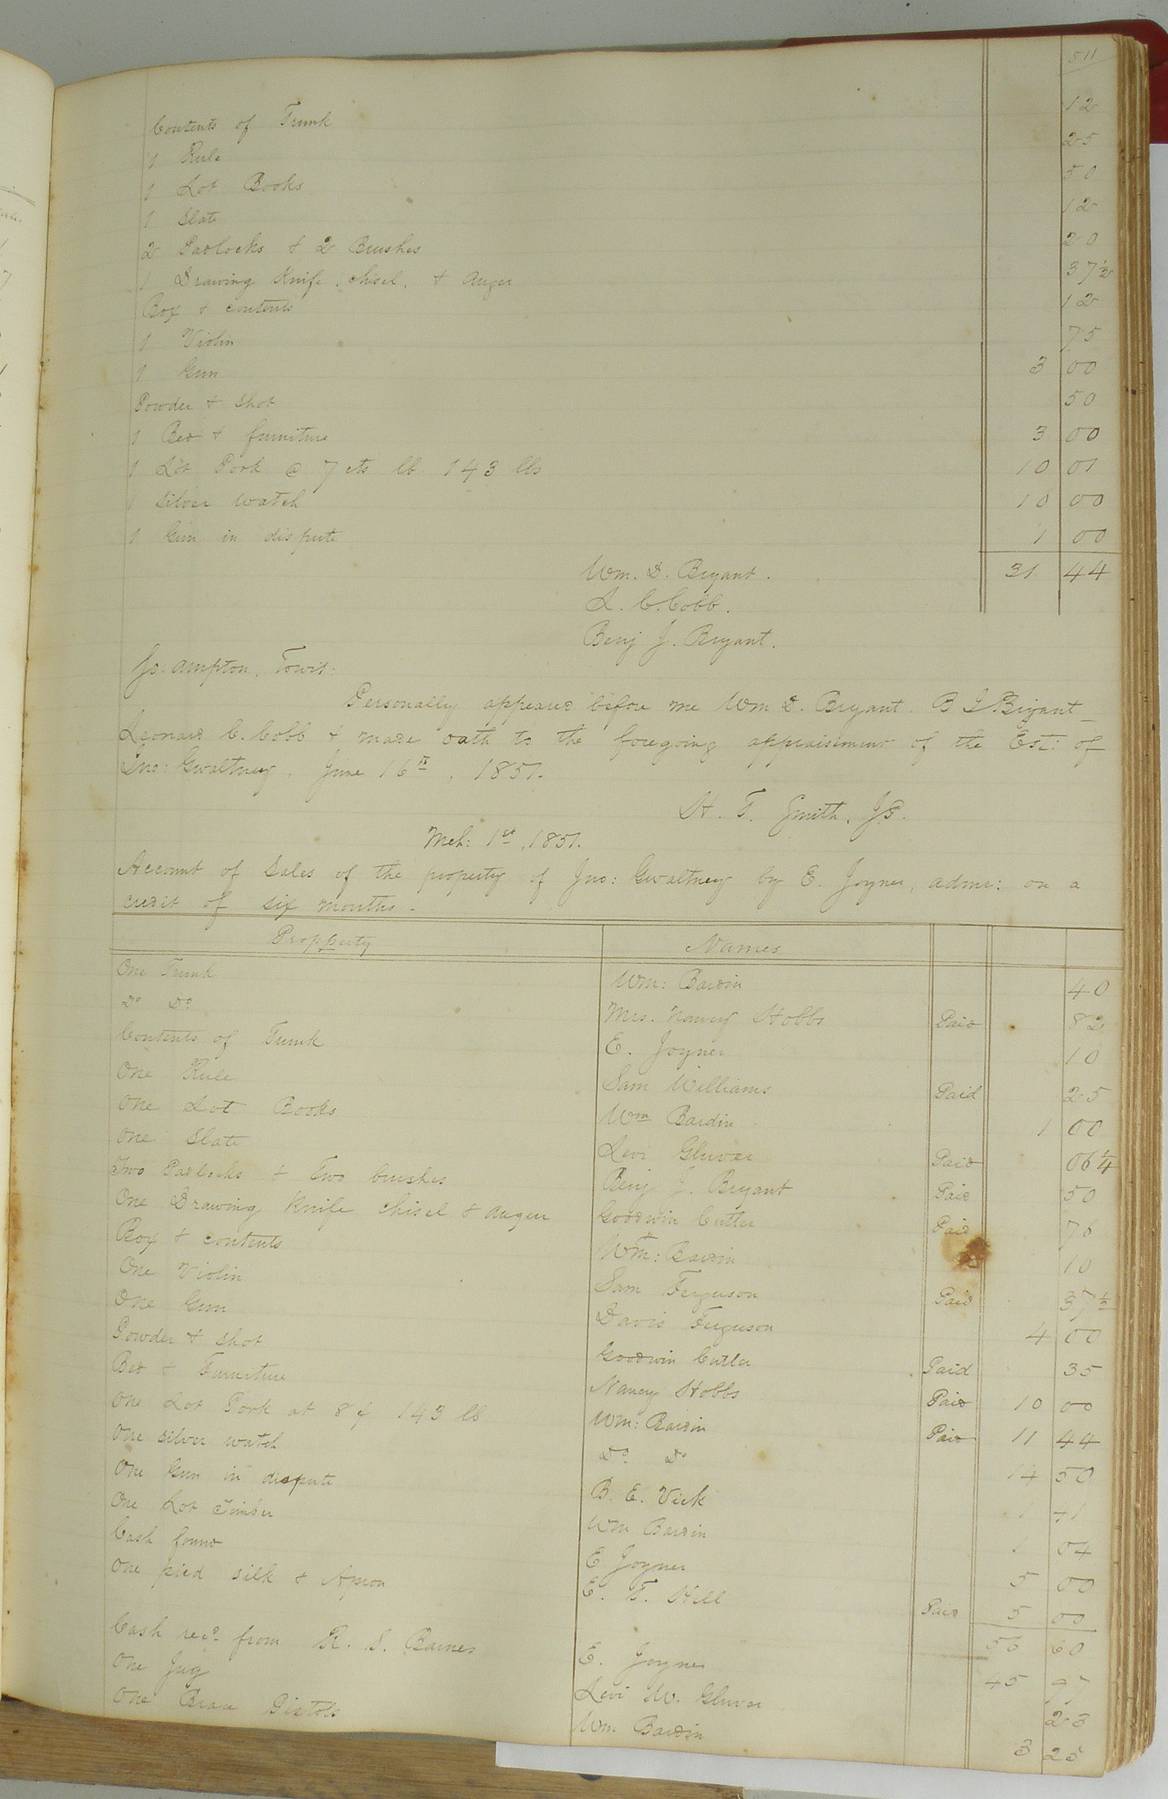 511
Contents of Trunk 12
1 Rule 25
1 Lot Books 50
1 Slate 12
2 Padlocks & 2 Brushes 20
1 Drawing Knife, chisel, & auger 37 1/2
Box & contents 12
1 Violin 75
1 Gun 3 00
Powder & shot 50
1 Bed & furniture 3 00
1 Lot Pork @ 7 cts lb 143 lbs 10 01
1 Silver watch 10 00
1 Gun in dispute 1 00
Wm. D. Bryant. 31 44
L. C. Cobb.
Benj J. Bryant.
So: ampton, Towit:
Personally appeared before me Wm D. Bryant. B J Bryant
Leonard C. Cobb & made oath to the foregoing appraisement of the Est: of
Jno: Gwaltney. June 16th, 1851.
H. T. Smith, J.P.
Mch: 1st, 1851.
Account of Sales of the property of Jno: Gwaltney by E. Joyner, admr: on a
credit of six months.
Propperty Names
One Trunk Wm: Bardin 40
Do Do Mrs. Nancy Hobbs Paid 82
Contents of Trunk E. Joyner 10
One Rule Sam Williams Paid 25
One Lot Books Wm Bardin 1 00
One Slate Levi Gluver Paid 06 1/4
Two Padlocks & Two brushes Benj J. Bryant Paid 50
One Drawing Knife chisel & auger Goodwin Cutler Paid 76
Box & contents Wm: Bardin 10
One Violin Sam Ferguson Paid 37 1/2
One Gun Davis Ferguson 4 00
Powder & shot Goodwin Cutler Paid 35
Bed & Furniture Nancy Hobbs Paid 10 00
One Lot Pork at 8 ¢ 143 lb Wm: Bardin Paid 11 44
One silver watch Do Do 14 50
One Gun in dispute B. E. Vick 1
One Lot Timber Wm Bardin 1 04
Cash found E Joyner 5 00
One pied silk & Apron E. T. Hill Paid 5 00
56 60
Cash recd. from R. S. Barnes E. Joyner 45 97
One Jug Levi W. Gluver 23
One Brace Pistols Wm Bardin 3 25